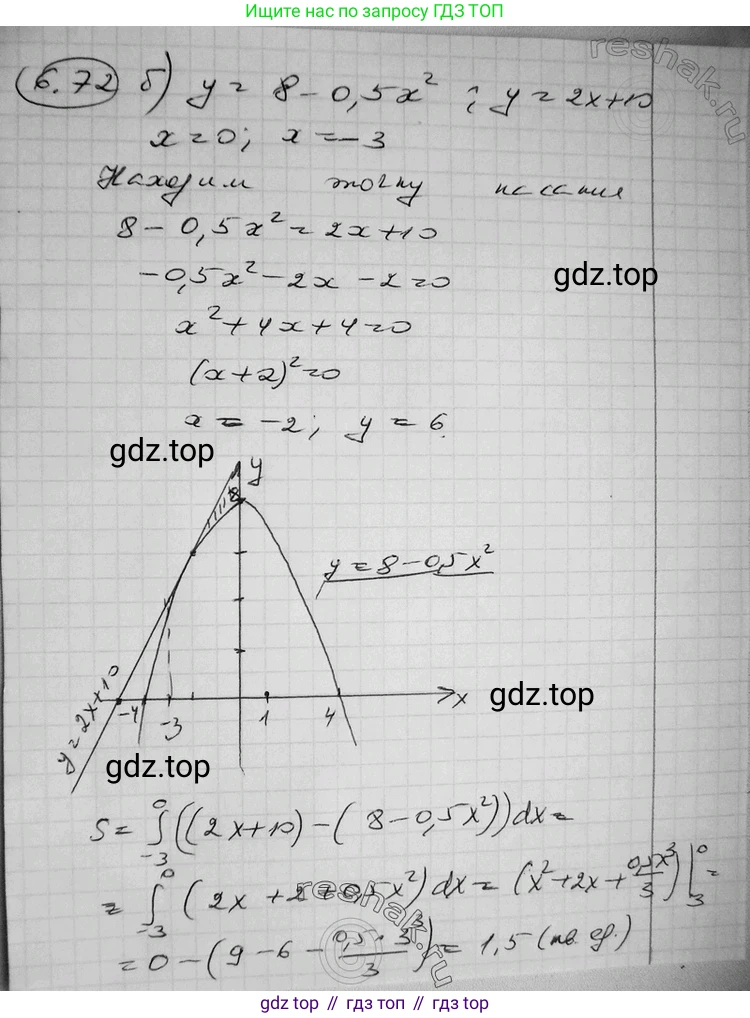 Ищите нас по запросу ГДЗ ТОП
reshak.ru
6.72 б) y = 8 - 0,5x² ; y = 2x+10
x = 0; x = -3
Находим точку касания
8 - 0,5x² = 2x+10
-0,5x² - 2x - 2 = 0
gdz.top
x² + 4x + 4 = 0
(x+2)² = 0
x = -2; y = 6.
gdz.top
y
8
y = 8 - 0,5x²
y = 2x+10
-4 -3 1 4 x
gdz.top
gdz.top
S = ∫₋₃⁰ ((2x+10) - (8 - 0,5x²))dx =
= ∫₋₃⁰ (2x + 2 + 0,5x²)dx = (x² + 2x + 0,5x³/3)|₃⁰ =
reshak.ru
= 0 - (9 - 6 - 0,5·3³/3) = 1,5 (кв. ед.)
gdz top // гдз топ // gdz.top